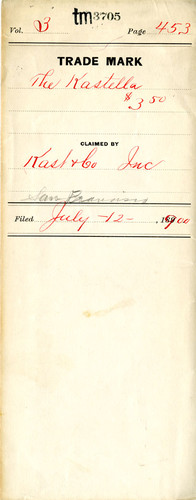 tm3705
Vol. 3 Page 453
TRADE MARK
The Kastella
$3.50
CLAIMED BY
Kast & Co Inc
San Francisco
Filed July-12-1900